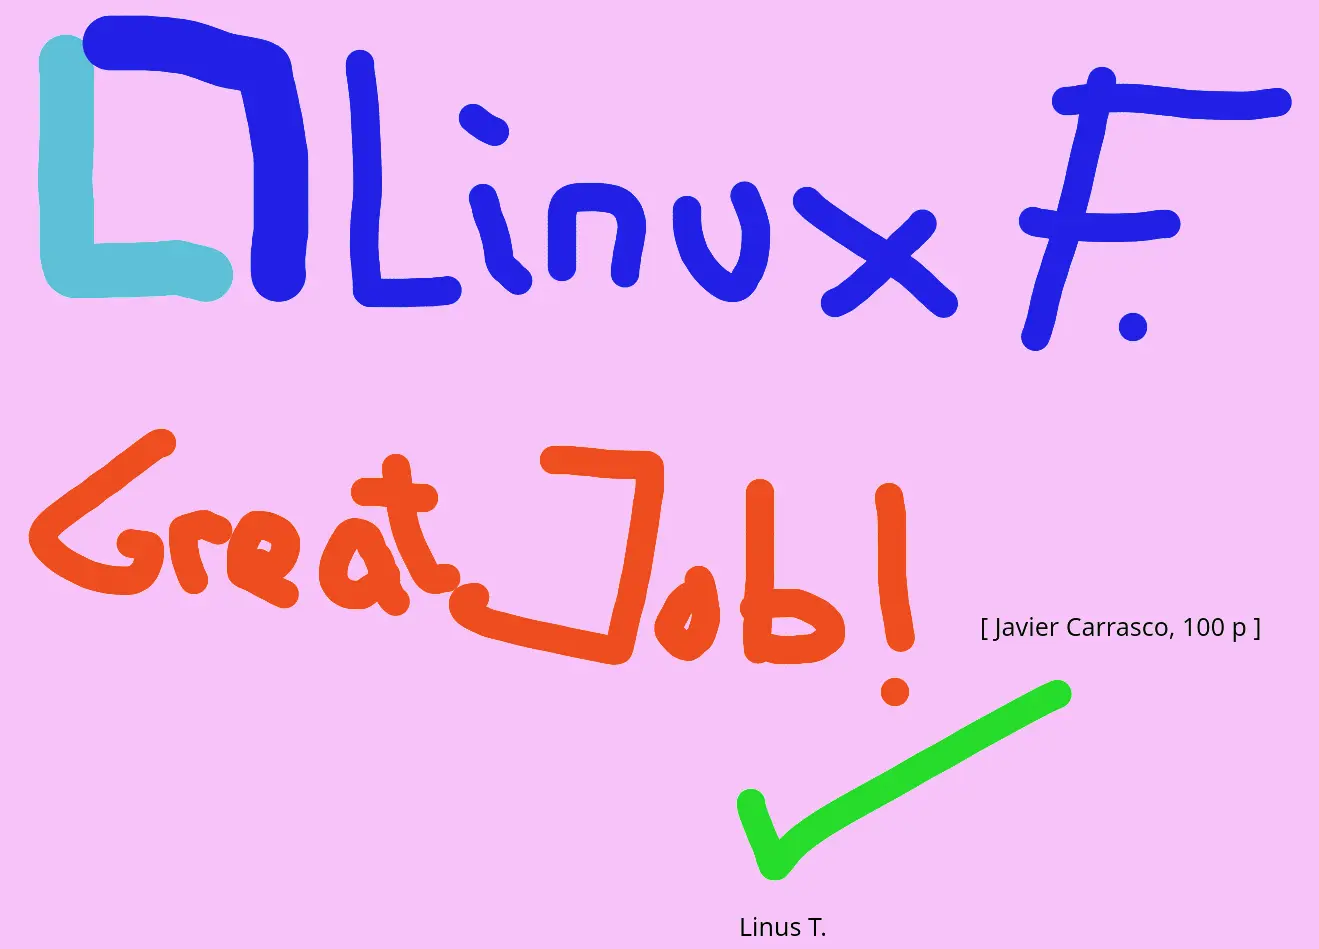 Linux F.
Great Job!
[ Javier Carrasco, 100 p ]
Linus T.